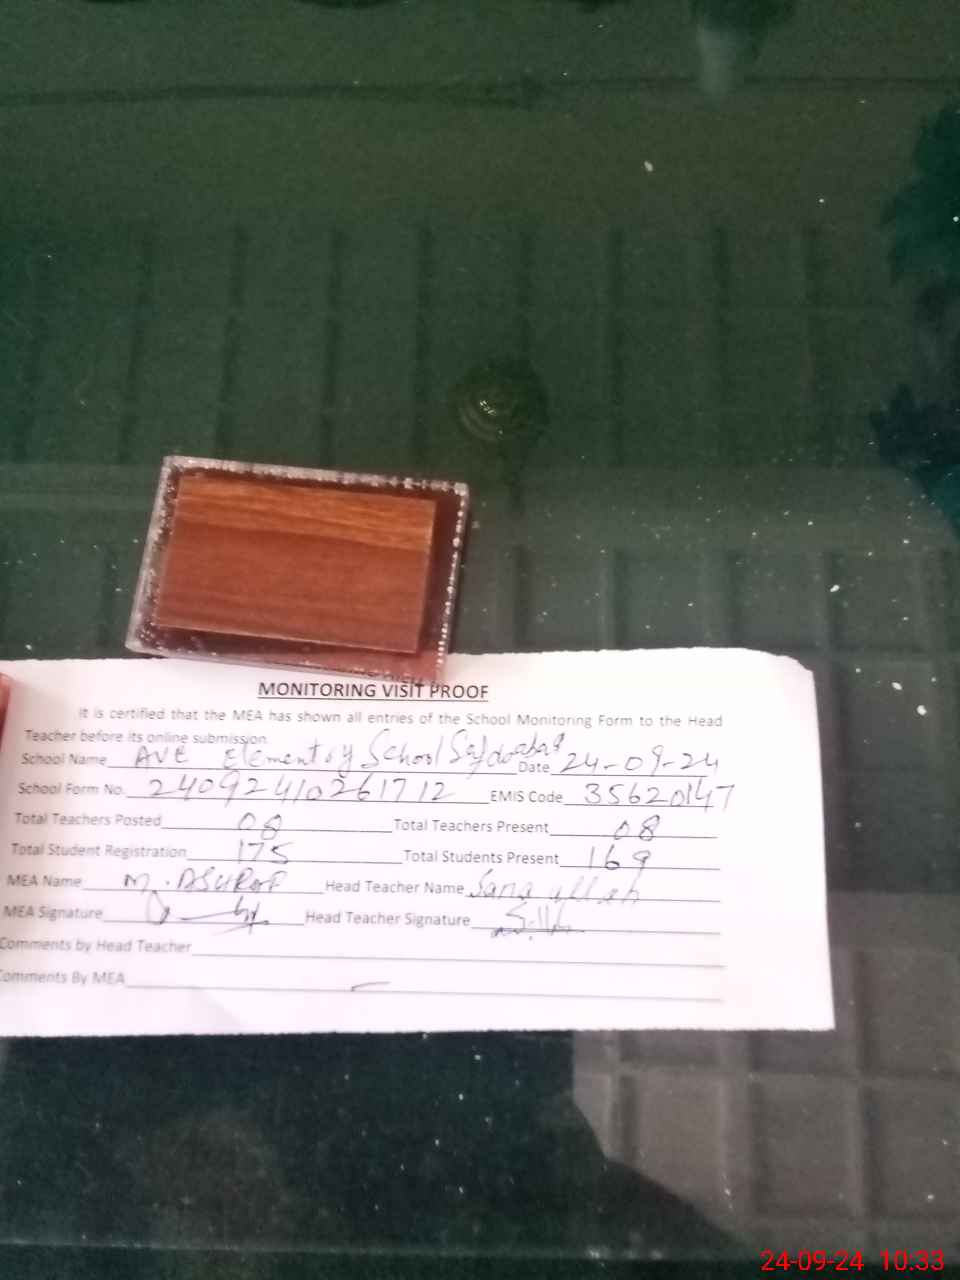 MONITORING VISIT PROOF
It is certified that the MEA has shown all entries of the School Monitoring Form to the Head
Teacher before its online submission.
School Name AVE Elementry School Safdarabad Date 24-09-24
School Form No. 24092410261712 EMIS Code 35620147
Total Teachers Posted 08 Total Teachers Present 08
Total Student Registration 175 Total Students Present 169
MEA Name M. ASHRAF Head Teacher Name Sana ullah
MEA Signature Head Teacher Signature
Comments by Head Teacher
Comments By MEA
24-09-24 10:33